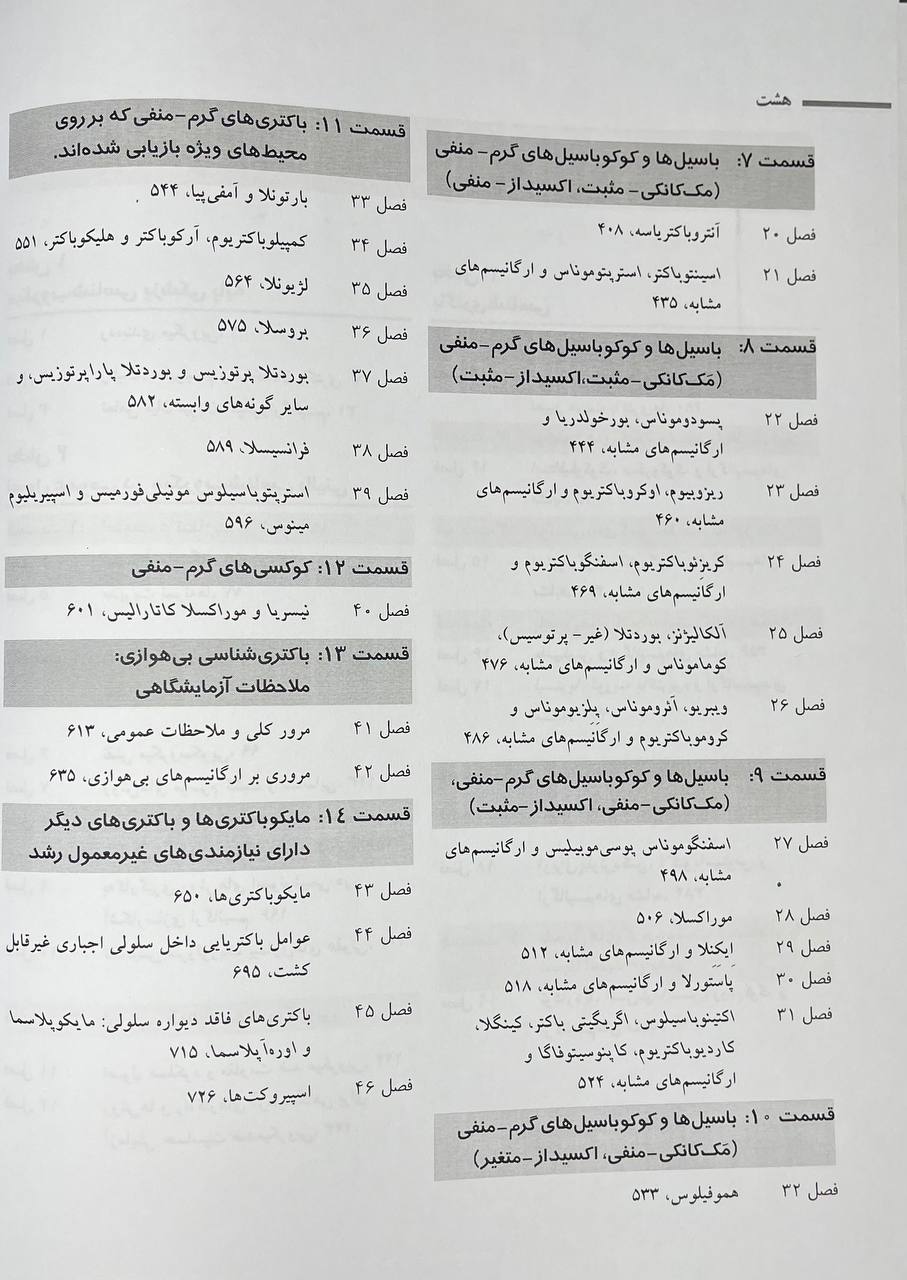 هشت
قسمت ۷: باسیل‌ها و کوکوباسیل‌های گرم-منفی
(مک‌کانکی- مثبت، اکسیداز- منفی)
فصل ۲۰ آنتروباکتریاسه، ۴۰۸
فصل ۲۱ اسینتوباکتر، استرپتوموناس و ارگانیسم‌های
مشابه، ۴۳۵
قسمت ۸: باسیل‌ها و کوکوباسیل‌های گرم-منفی
(مَک‌کانکی-مثبت،اکسیداز-مثبت)
فصل ۲۲ پسودوموناس، بورخولدریا و
ارگانیسم‌های مشابه، ۴۴۴
فصل ۲۳ ریزوبیوم، اوکروباکتریوم و ارگانیسم‌های
مشابه، ۴۶۰
فصل ۲۴ کریزئوباکتریوم، اسفنگوباکتریوم و
ارگانیسم‌های مشابه، ۴۶۹
فصل ۲۵ آلکالیژنز، بوردتلا (غیر- پرتوسیس)،
کوماموناس و ارگانیسم‌های مشابه، ۴۷۶
فصل ۲۶ ویبریو، آئروموناس، پِلِزیوموناس و
کروموباکتریوم و ارگانیسم‌های مشابه، ۴۸۶
قسمت ۹: باسیل‌ها و کوکوباسیل‌های گرم-منفی،
(مک‌کانکی-منفی، اکسیداز-مثبت)
فصل ۲۷ اسفنگوموناس پوسی‌موبیلیس و ارگانیسم‌های
مشابه، ۴۹۸
فصل ۲۸ موراکسلا، ۵۰۶
فصل ۲۹ ایکنلا و ارگانیسم‌های مشابه، ۵۱۲
فصل ۳۰ پاستورلا و ارگانیسم‌های مشابه، ۵۱۸
فصل ۳۱ اکتینوباسیلوس، اگریگیتی باکتر، کینگلا،
کاردیوباکتریوم، کاپنوسیتوفاگا و
ارگانیسم‌های مشابه، ۵۲۴
قسمت ۱۰: باسیل‌ها و کوکوباسیل‌های گرم-منفی
(مَک‌کانکی-منفی، اکسیداز-متغیر)
فصل ۳۲ هموفیلوس، ۵۳۳
قسمت ۱۱: باکتری‌های گرم-منفی که بر روی
محیط‌های ویژه بازیابی شده‌اند.
فصل ۳۳ بارتونلا و آمفی‌پیا، ۵۴۴
فصل ۳۴ کمپیلوباکتریوم، آرکوباکتر و هلیکوباکتر، ۵۵۱
فصل ۳۵ لژیونلا، ۵۶۴
فصل ۳۶ بروسلا، ۵۷۵
فصل ۳۷ بوردتلا پرتوزیس و بوردتلا پاراپرتوزیس، و
سایر گونه‌های وابسته، ۵۸۲
فصل ۳۸ فرانسیسلا، ۵۸۹
فصل ۳۹ استرپتوباسیلوس مونیلی‌فورمیس و اسپیریلیوم
مینوس، ۵۹۶
قسمت ۱۲: کوکسی‌های گرم-منفی
فصل ۴۰ نیسریا و موراکسلا کاتارالیس، ۶۰۱
قسمت ۱۳: باکتری‌شناسی بی‌هوازی:
ملاحظات آزمایشگاهی
فصل ۴۱ مرور کلی و ملاحظات عمومی، ۶۱۳
فصل ۴۲ مروری بر ارگانیسم‌های بی‌هوازی، ۶۳۵
قسمت ۱۴: مایکوباکتری‌ها و باکتری‌های دیگر
دارای نیازمندی‌های غیرمعمول رشد
فصل ۴۳ مایکوباکتری‌ها، ۶۵۰
فصل ۴۴ عوامل باکتریایی داخل سلولی اجباری غیرقابل
کشت، ۶۹۵
فصل ۴۵ باکتری‌های فاقد دیواره سلولی: مایکوپلاسما
و اوره‌آپلاسما، ۷۱۵
فصل ۴۶ اسپیروکت‌ها، ۷۲۶